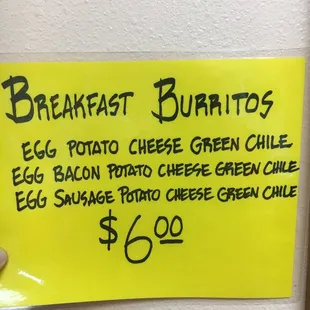 BREAKFAST BURRITOS
EGG POTATO CHEESE GREEN CHILE
EGG BACON POTATO CHEESE GREEN CHILE
EGG SAUSAGE POTATO CHEESE GREEN CHILE
$6.00